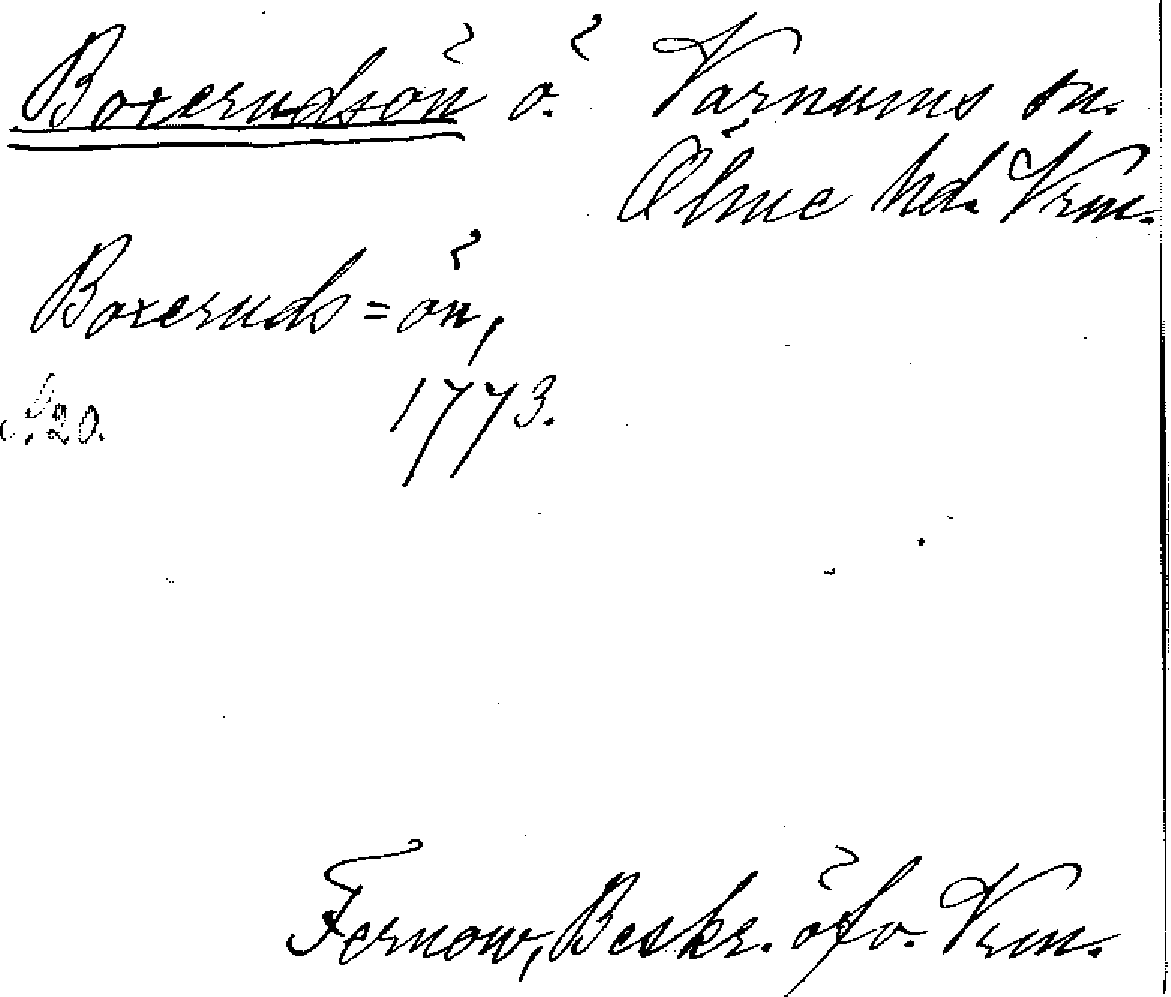 Boxerudsön ö. Varnums sn.
Ölme hd. Vrm.
Boxeruds=ön,
1773.
20.
Fernow, Beskr. öfv. Vrm.